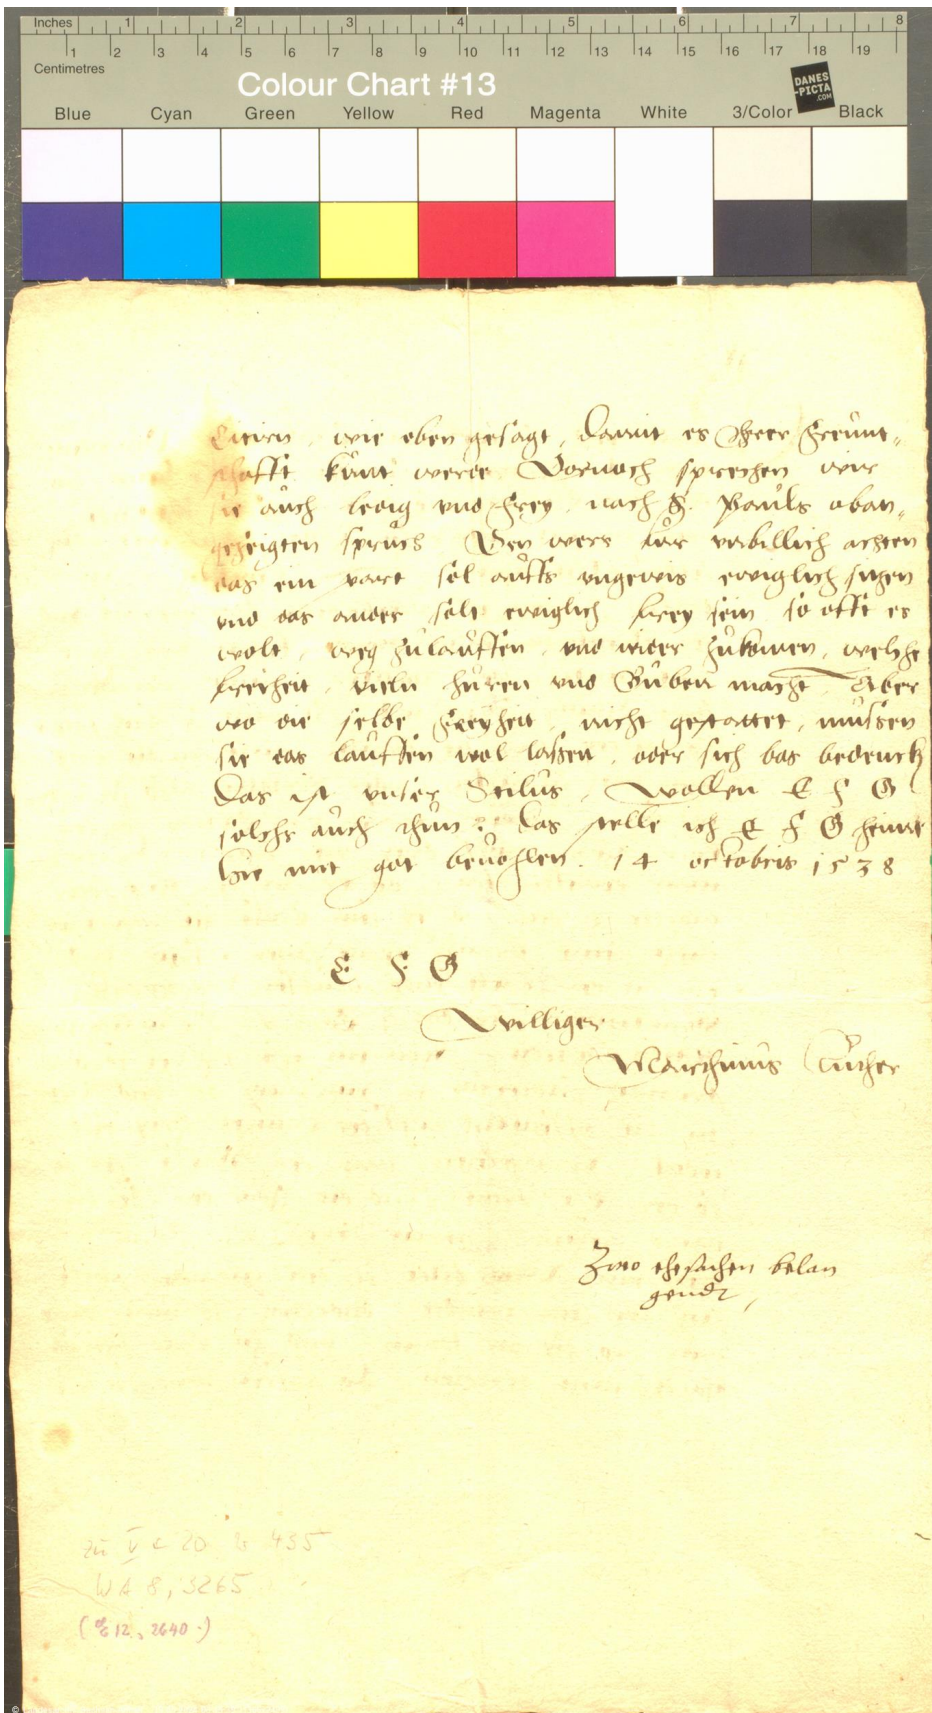 Inches 1 2 3 4 5 6 7 8
1 2 3 4 5 6 7 8 9 10 11 12 13 14 15 16 17 18 19
Centimetres
Colour Chart #13
DANES
-PICTA
.COM
Blue Cyan Green Yellow Red Magenta White 3/Color Black
Citirn, wie oben gesagt, damit es yhrer freunt-
schafft kund werde Darnach sprechen wir
sie auch ledig vnd frey, nach S. Pauls oban-
gezeigten spruch Den wers fur vnbillich achten
das ein part sol auffs vngewis ewiglich sitzen
vnd das ander solt ewiglich frey sein so offt es
wolt, weg zulauffen, vnd wider zukomen, welche
freiheit, viel huren vnd Buben macht Aber
wo die selbe freyheit, nicht gestattet, mussen
sie das lauffen wol lassen, oder sich bas bedenck
Das ist vnser Stilus, Wollen E F G
solchs auch thun: das stelle ich E F G heimt
Hie mit got beuohlen. 14 octobris 1538
E F G
Williger
Marthinus Luther
Zwo ehesachen belan
gendt,
zu V c 20 455
WA 8, 3265
(12, 2640.)